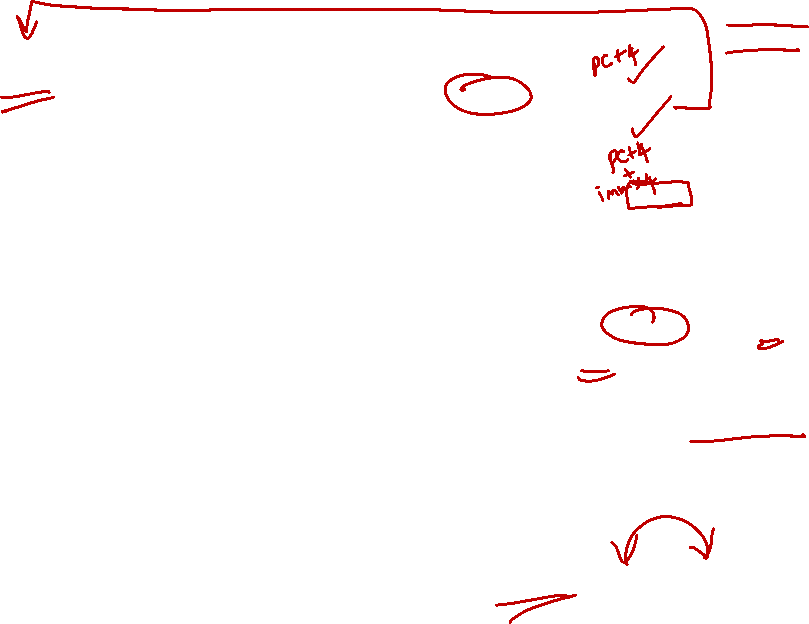 PC+4
PC+4
+
imm×4